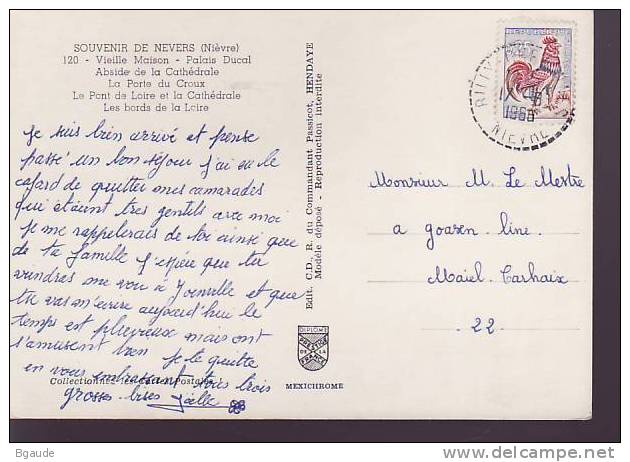 SOUVENIR DE NEVERS (Nièvre)
120 - Vieille Maison - Palais Ducal
Abside de la Cathédrale
La Porte du Croux
Le Pont de Loire et la Cathédrale
Les bords de la Loire
Je suis bien arrivé et pense
passé un bon séjour j'ai eu le
cafard de quitter mes camarades
qui étaient tres gentils avec moi
je me rappelerais de toi ainsi que
de ta famille j'espère que tu
viendras me voir à Joinville et que
tu vas m'écrire aujourd'hui le
temps est pluvieux mais ont
s'amusent bien je te quitte
en vous embrassant tous trois
grosses bises Joëlle
Collectionnez les Cartes Postales !
Edit. C.D. R. du Commandant Passicot, HENDAYE
Modèle déposé - Reproduction interdite
DIPLOME
PRESTIGE
DE LA
FRANCE
MEXICHROME
1966
NIEVRE
Monsieur M. Le Mestre
a goazen line
Maiel Carhaix
- 22 -
Bgaude
www.delcampe.net